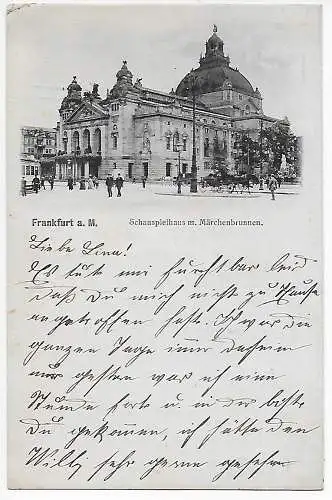 Frankfurt a. M. Schauspielhaus m. Märchenbrunnen.
Liebe Lina!
Es tut mir furchtbar leid
daß Du mich nicht zu Hause
angetroffen hast. Ich war die
ganzen Tage immer daheim
nur gestern war ich eine
Stunde fort u. in der bist
Du gekommen, ich hätte den
Willy sehr gerne gesehen